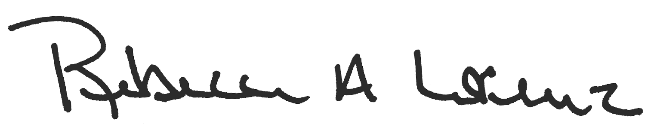 Rebecca A Lorenz